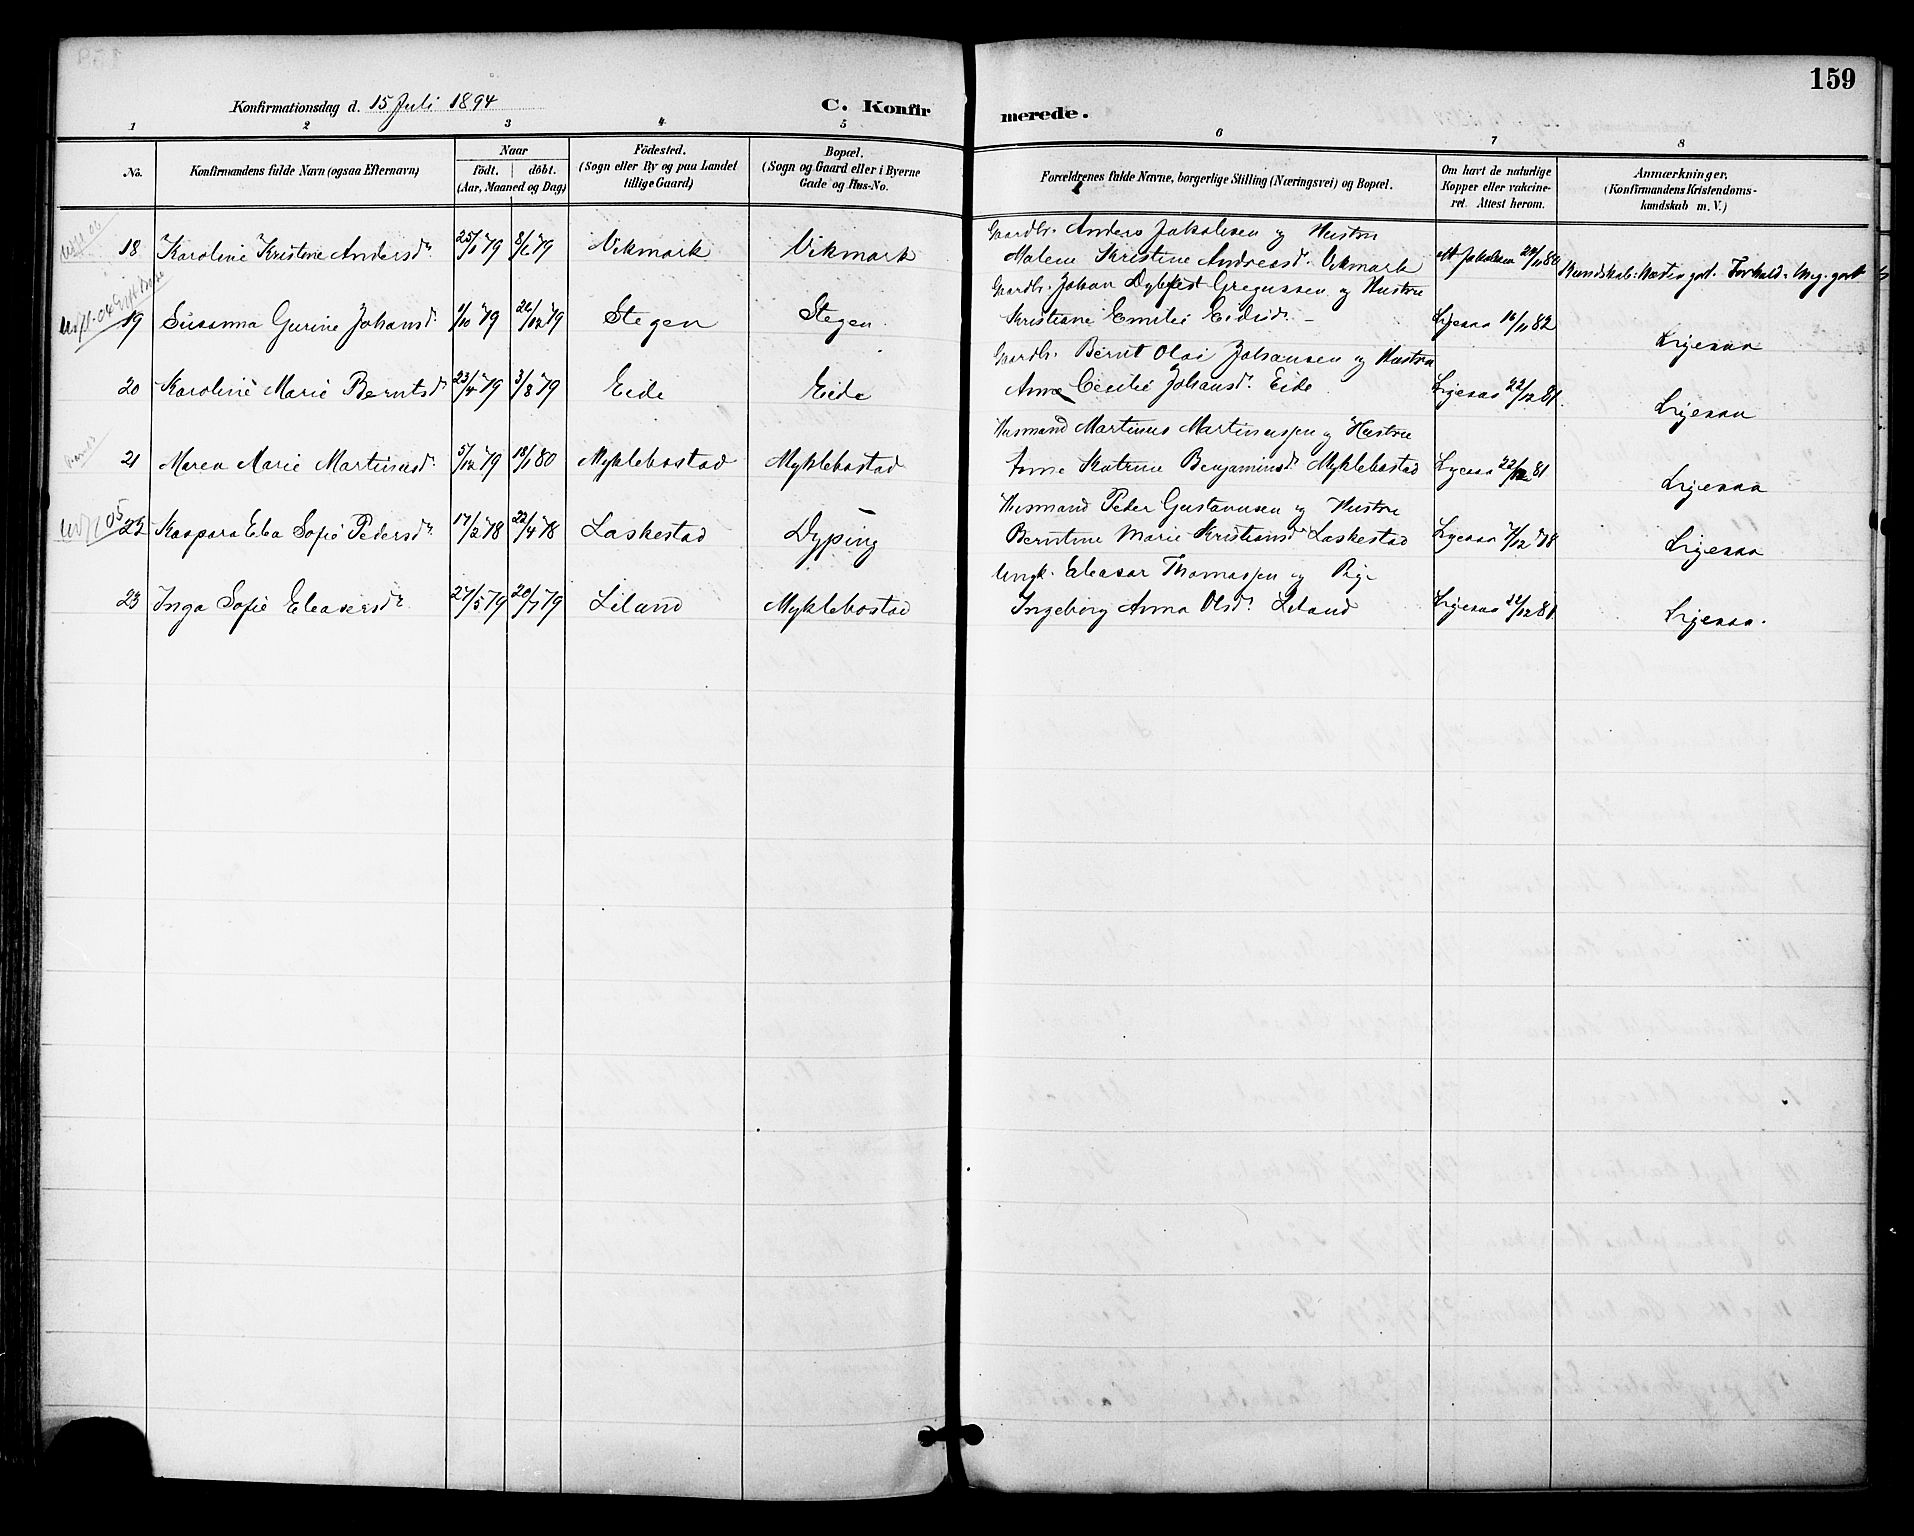 159
Konfirmationsdag d. 15 Juli 1894
C. Konfirmerede.
1 2 3 4 5 6 7 8
No.
Konfirmandens fulde Navn (ogsaa Efternavn)
Naar
födt. döbt.
(Aar, Maaned og Dag)
Födested.
(Sogn eller By og paa Landet
tillige Gaard)
Bopæl.
(Sogn og Gaard eller i Byerne
Gade og Hus-No.
Forældrenes fulde Navne, borgerlige Stilling (Næringsvei) og Bopæl.
Om havt de naturlige
Kopper eller vakcine-
ret. Attest herom.
Anmærkninger,
(Konfirmandens Kristendoms-
kundskab m. V.)
18 Karoline Kristine Andersdr 25/1 79 8/6 79 Vikmark Vikmark
Gaardbr. Anders Jakobsen og Hustru
Malene Kristine Andreasd. Vikmark
Att Jakobsen 80
Kundskab: Næsten godt. Forhold: Meg. godt
19 Susanna Gurine Johansdr 1/10 79 26/12 79 Stegen Stegen.
Gaardbr. Johan Dybfest Gregussen og Hustru
Kristiane Emilie Eidisdr. –
Ligesaa 16/11 82
Ligesaa
20 Karoline Marie Berntsdr 23/4 79 3/8 79 Eide Eide
Gaardbr. Bernt Olai Johansen og Hustru
Anne Cecilie Johansdr. Eide
Ligesaa 22/12 81.
Ligesaa
21 Maren Marie Martinusdr. 5/12 79 18/1 80 Myklebostad Myklebostad
Husmand Martinus Martinussen og Hustru
Anne Katrine Benjaminsdr. Myklebostad
Ligesaa 22/12 81
Ligesaa
22 Kaspara Eba Sofie Pedersdr. 17/2 78 22/4 78 Laskestad Dyping
Husmand Peder Gustavusen og Hustru
Berntine Marie Kristiansdr Laskestad
Ligesaa 7/12 78
Ligesaa
23 Inga Sofie Eleasersdr. 27/5 79 20/7 79 Leland Myklebostad
Ungk. Eleasar Thomassen og Pige
Ingeborg Anna Olsdr. Leland
Ligesaa 22/12 81
Ligesaa.